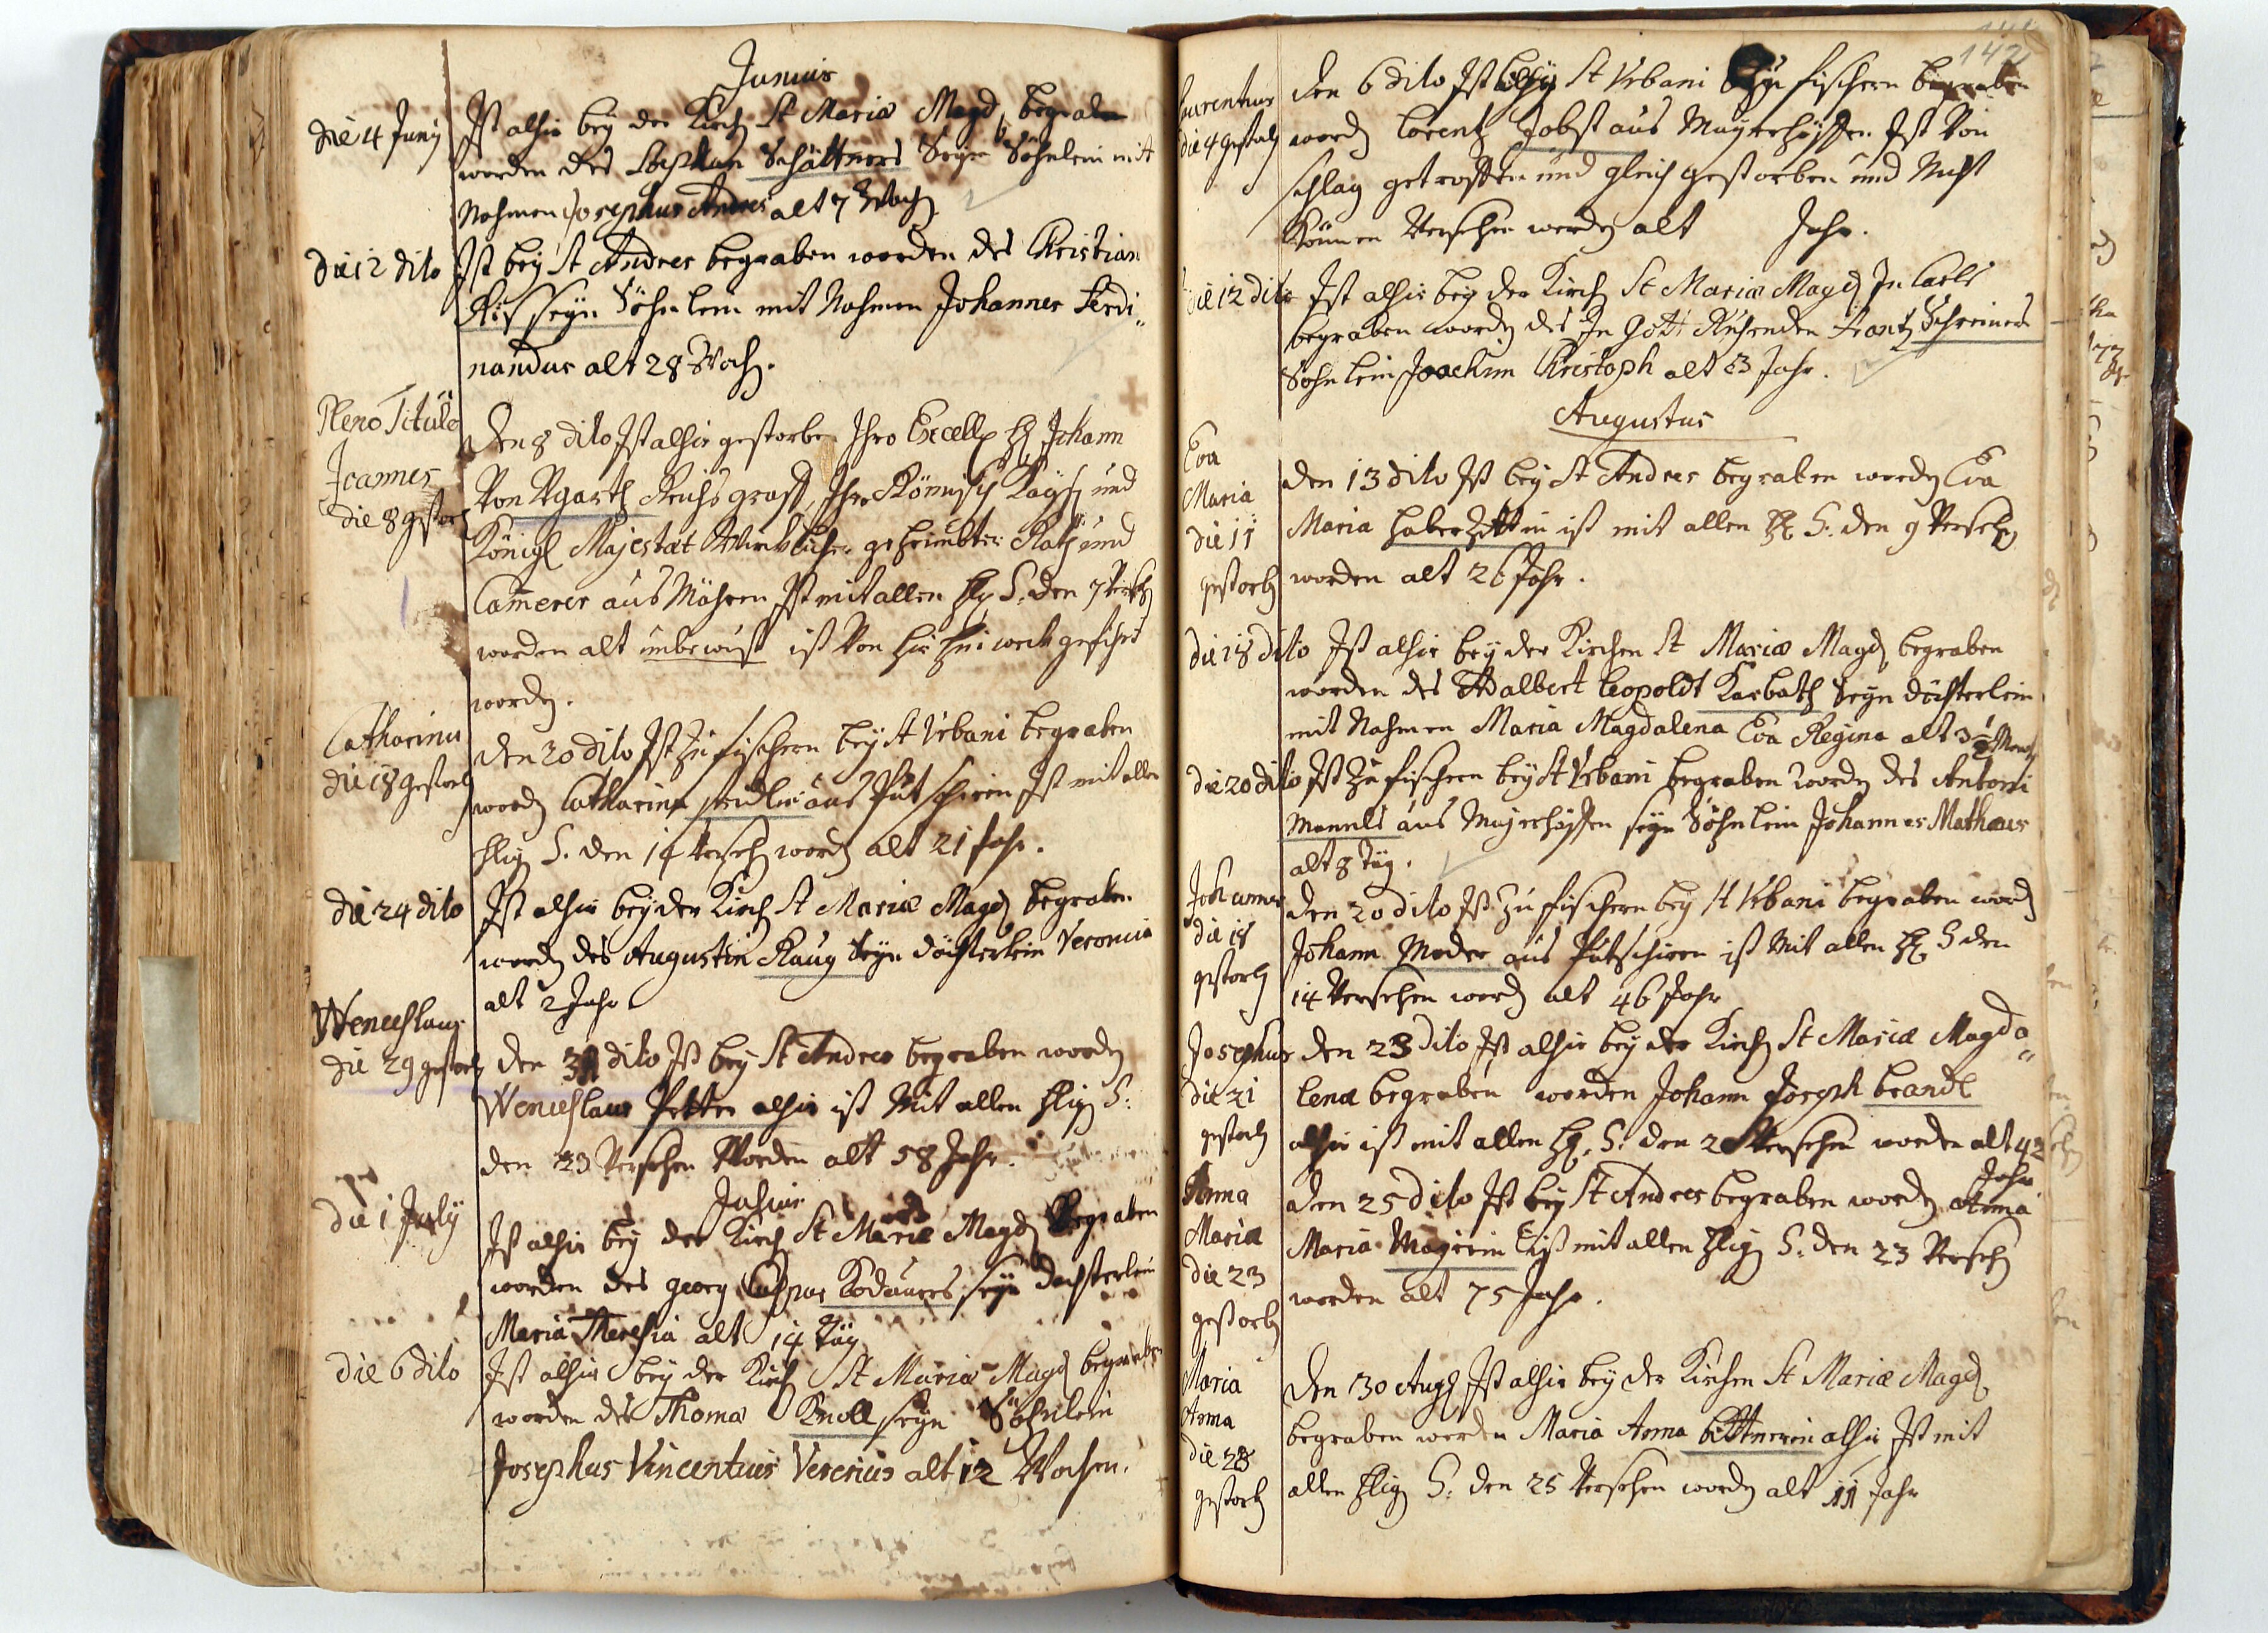 Junius
die 4 Juny
Ist alhir bey der Kirch St Mariæ Magd begraben
worden des Schüttners Seyn Söhnlein mit
Nahmen Josephus Andres alt 7 Woch
die 12 dito
Ist bey St Andres begraben worden des Christian
seyn Söhnlein mit Nahmen Johannes Ferdi„
nandus alt 28 Woch.
Pleno Titulo
Joannes
die 8 gestorb
Den 8 dito Ist alhir gestorben Ihro Excell H Johann
Von Reichs graff, Ihro Römisch Kays und
Königl Majestät Würklicher geheimbter Rath und
Camerer aus Mähren Ist mit allen Hl S. den 7 Versch
worden alt unbewust ist Von hir hin weck geführt
worden.
Catharina
die 18 gestorb
Den 20 dito Ist Zu fischern bey St Urbani begraben
word Catharina seidlin aus Putschirn Ist mit allen
Hlig S. den 14 Verseh word alt 21 Jahr.
die 24 dito
Ist alhir bey der Kirch St Mariæ Magd begraben
word des Augustin Raug Seyn döchterlein Veronica
alt 2 Jahr
Wenceslaus
die 29 gestorb
Den dito Ist bey St Andres begraben word
Wenceslaus Petter alhir ist Mit allen Hlig S:
den 23 Versehen Worden alt 58 Jahr.
Julius
die 1 July
Ist alhir bey der Kirch St Mariæ Magd Begraben
worden des georg Caspar Kodauers seyn dochterlein
Maria Theresia alt 14 Täg
die 6 dito
Ist alhir bey der Kirch St Mariæ Magd begraben
worden des Thoma Knoll seyn Söhnlein
Josephus Vincentius Vererius alt 12 Wochen.
142
Laurentius
die 4 gestorb
Den 6 dito Ist St Urbani Zu fischern begraben
word Lorentz Jobst aus Mayerhöffen Ist Von
schlag getroffen und gleich gestorben und Nicht
Können Versehen werden alt Jahr.
die 12 dito
Ist alhir bey der Kirch St Mariæ Magd In Carls
begraben word des In Gott Ruhenden Frantz Schreiners
Söhnlein Joachim Christoph alt 3 Jahr.
Augustus
Eva
Maria
die 11
gestorb
Den 13 dito Ist bey St Andres begraben word Eva
Maria haberzettin ist mit allen Hl S. den 9 Verseh
worden alt 26 Jahr.
die 18 dito
Ist alhir bey der Kirchen St Mariæ Magd begraben
worden des Adalbert Leopoldt Karbath Seyn döchterlein
mit Nahmen Maria Magdalena Eva Regina alt 3½ Monat
die 20 dito
Ist Zu fischern bey St Urbani begraben Word des Antoni
Mannls aus Mayerhöffen seyn Söhnlein Johannes Mathæus
alt 8 Täg.
Johannes
die 18
gestorb
Den 20 dito Ist Zu fischern bey St Urbani begraben word
Johann Moder aus Putschirn ist Mit allen Hl S den
14 Versehen word alt 46 Jahr
Josephus
die 21
gestorb
Den 23 dito Ist alhir bey der Kirch St Mariæ Magda„
lenæ begraben worden Johann Joseph brandl
alhir ist mit allen Hl. S. den 20 Versehen worden alt 42
Jahr
Anna
Maria
die 23
gestorb
Den 25 dito Ist bey St Andres begraben word Anna
Maria Mayerin ist mit allen Hlig S. den 23 Verseh
worden alt 75 Jahr.
Maria
Anna
die 28
gestorb
Den 30 Aug Ist alhir bey der Kirchen St Mariæ Magd
begraben worden Maria Anna bittnerin alhir Ist mit
allen Hlig S. den 25 Versehen word alt 11 Jahr